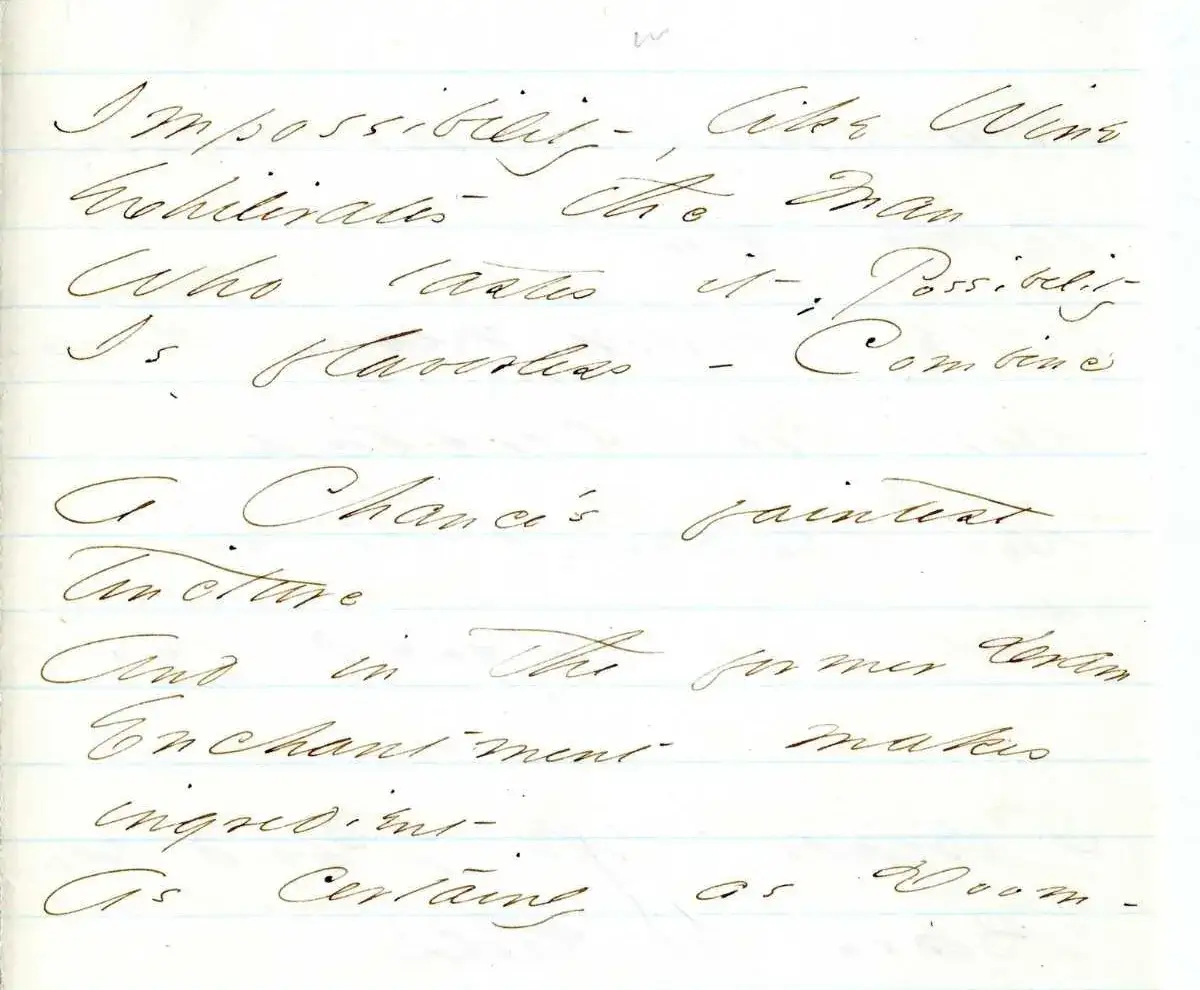 Impossibility, like Wine
Exhilirates the Man
Who tastes it; Possibility
Is flavorless - Combine
A Chance's faintest
tincture
And in the former Dram
Enchantment makes
ingredient
As certainly as Doom -